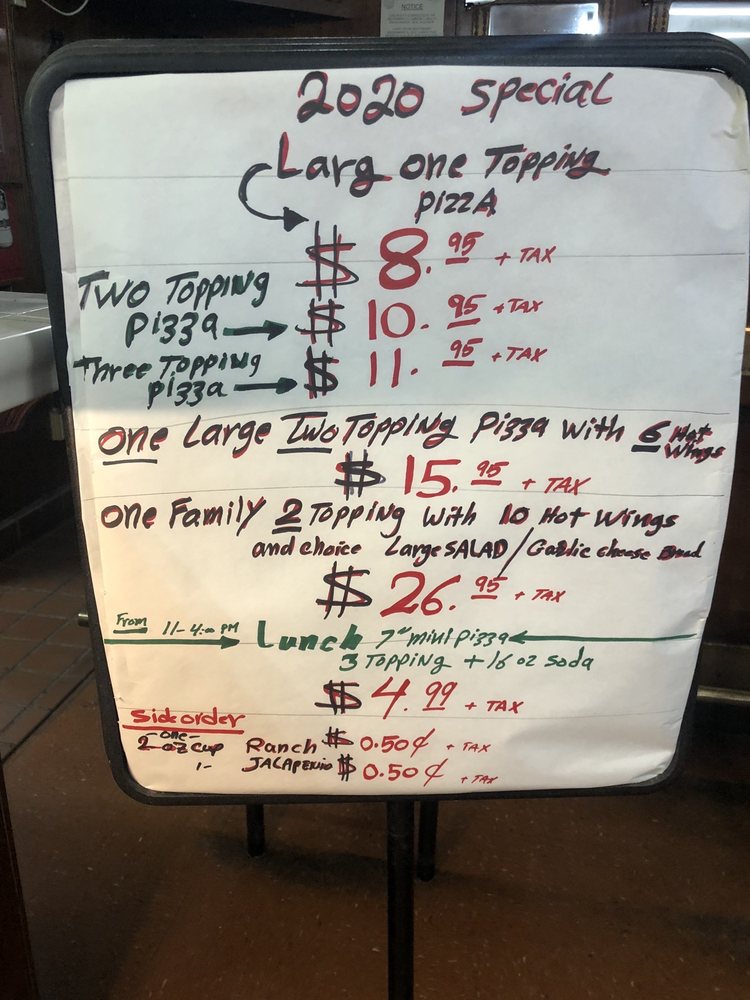 NOTICE
2020 Special
Larg one Topping
pizzA
$ 8.95 + TAX
Two Topping
pizza → $ 10.95 + TAX
Three Topping
pizza → $ 11.95 + TAX
one Large Two Topping Pizza with 6 Hot Wings
$ 15.95 + TAX
one Family 2 Topping with 10 Hot Wings
and choice Large SALAD / Garlic cheese Bread
$ 26.95 + TAX
From 11-4:00 PM Lunch 7" mini pizza
3 Topping + 16 oz soda
$ 4.99 + TAX
Side order
-one-
2 oz cup Ranch $ 0.50¢ + TAX
1- JALAPENIO $ 0.50¢ + TAX